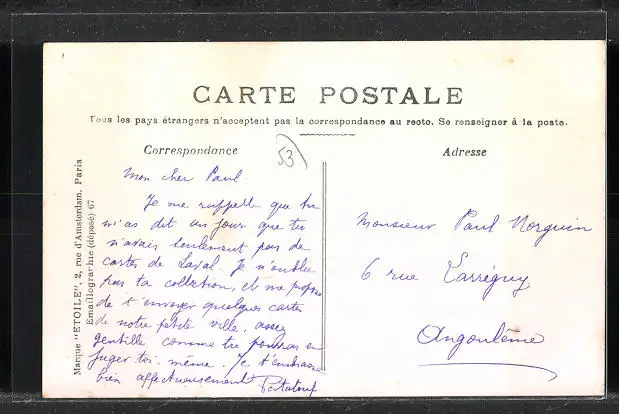 CARTE POSTALE
Tous les pays étrangers n'acceptent pas la correspondance au recto. Se renseigner à la poste.
Correspondance
53
Mon cher Paul
Je me rappelle que tu
m'as dit un jour que tu
n'avais seulement pas de
cartes de Laval. Je n'oublie
pas ta collection, et me propose
de t'envoyer quelques cartes
de notre petite ville, assez
gentille comme tu pourras en
juger toi-même. Je t'embrasse
bien affectueusement
Adresse
Monsieur Paul Norguin
6 rue Larréguy
Angoulême
Marque "ETOILE", 2, rue d'Amsterdam, Paris
Emaillographie (déposé) 67